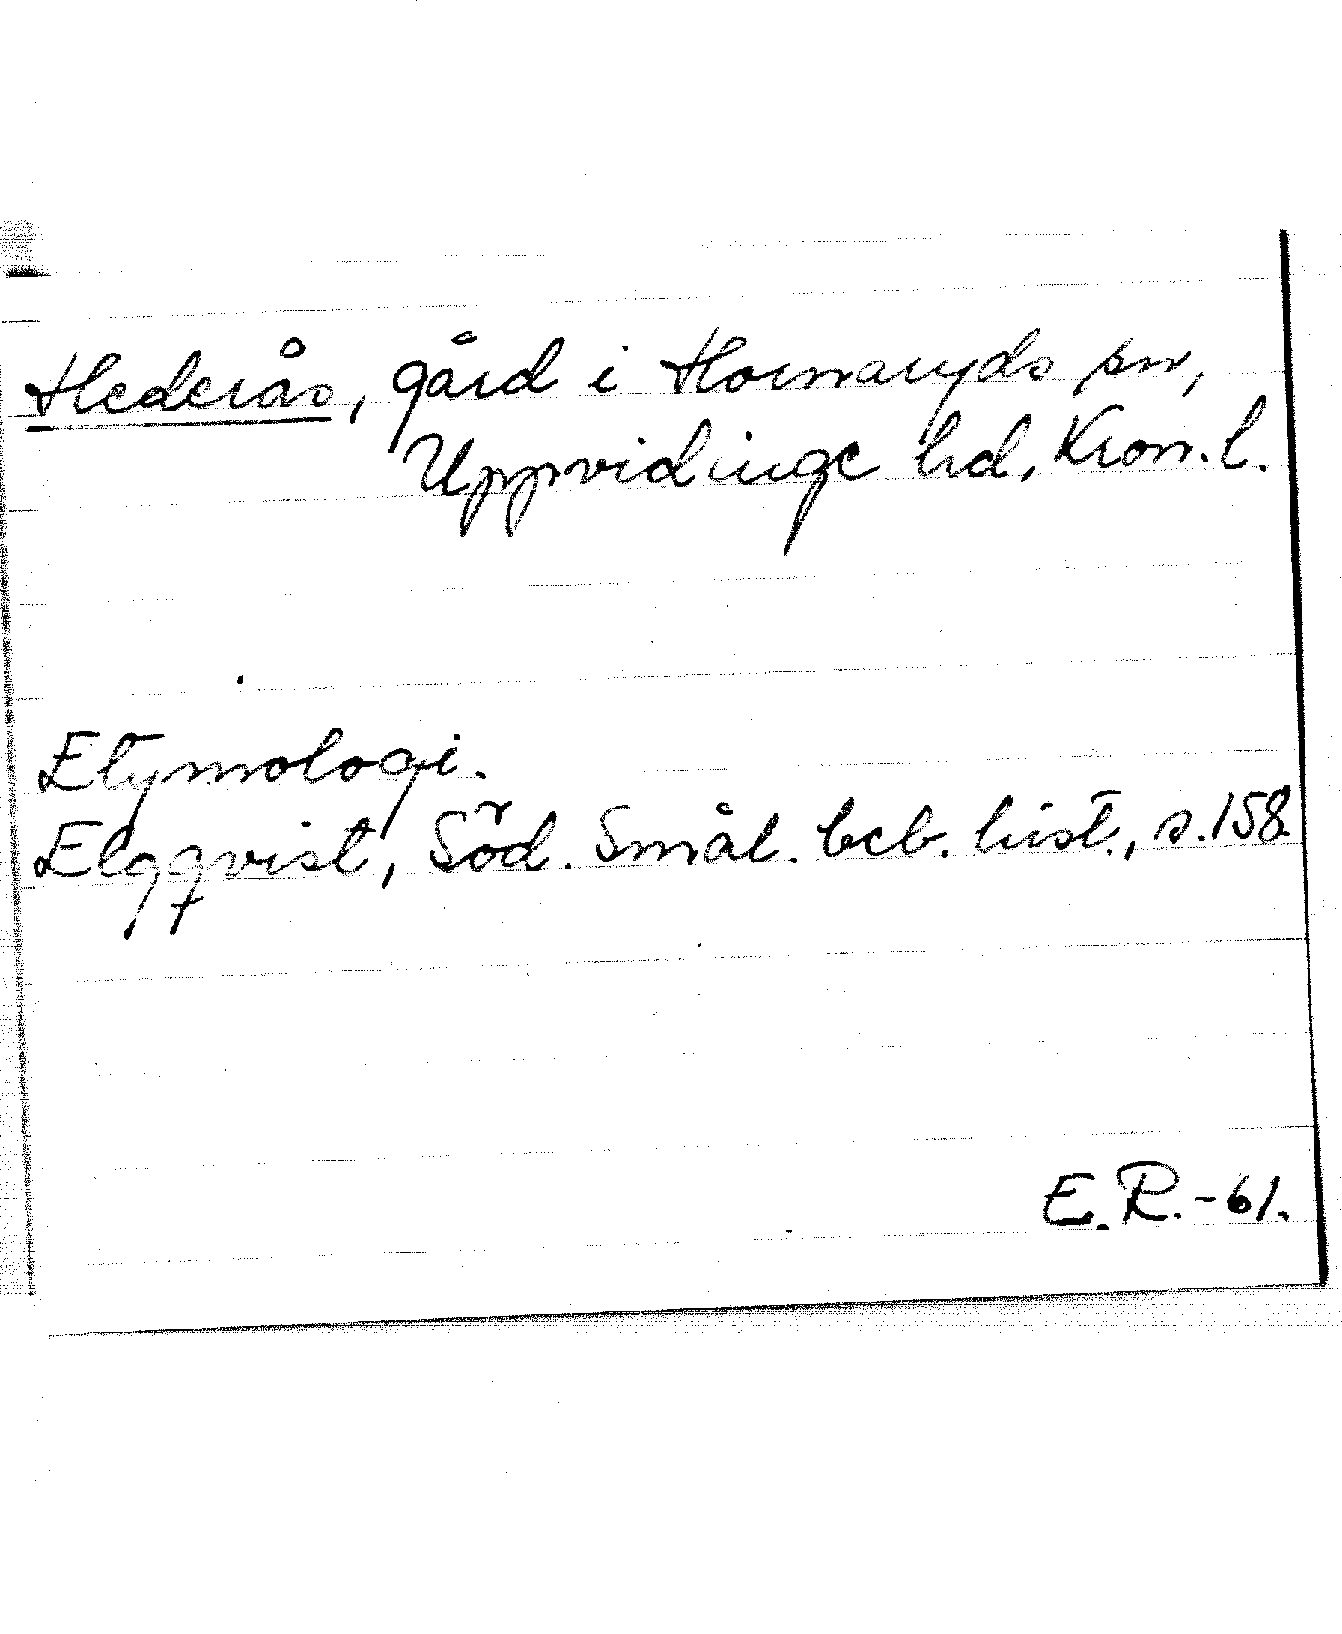 Hederås, gård i Hornaryds sn,
Uppvidinge hd, Kron. l.
Etymologi.
Elgqvist, Söd. Smål. beb. hist., s. 158.
E. R. -61.